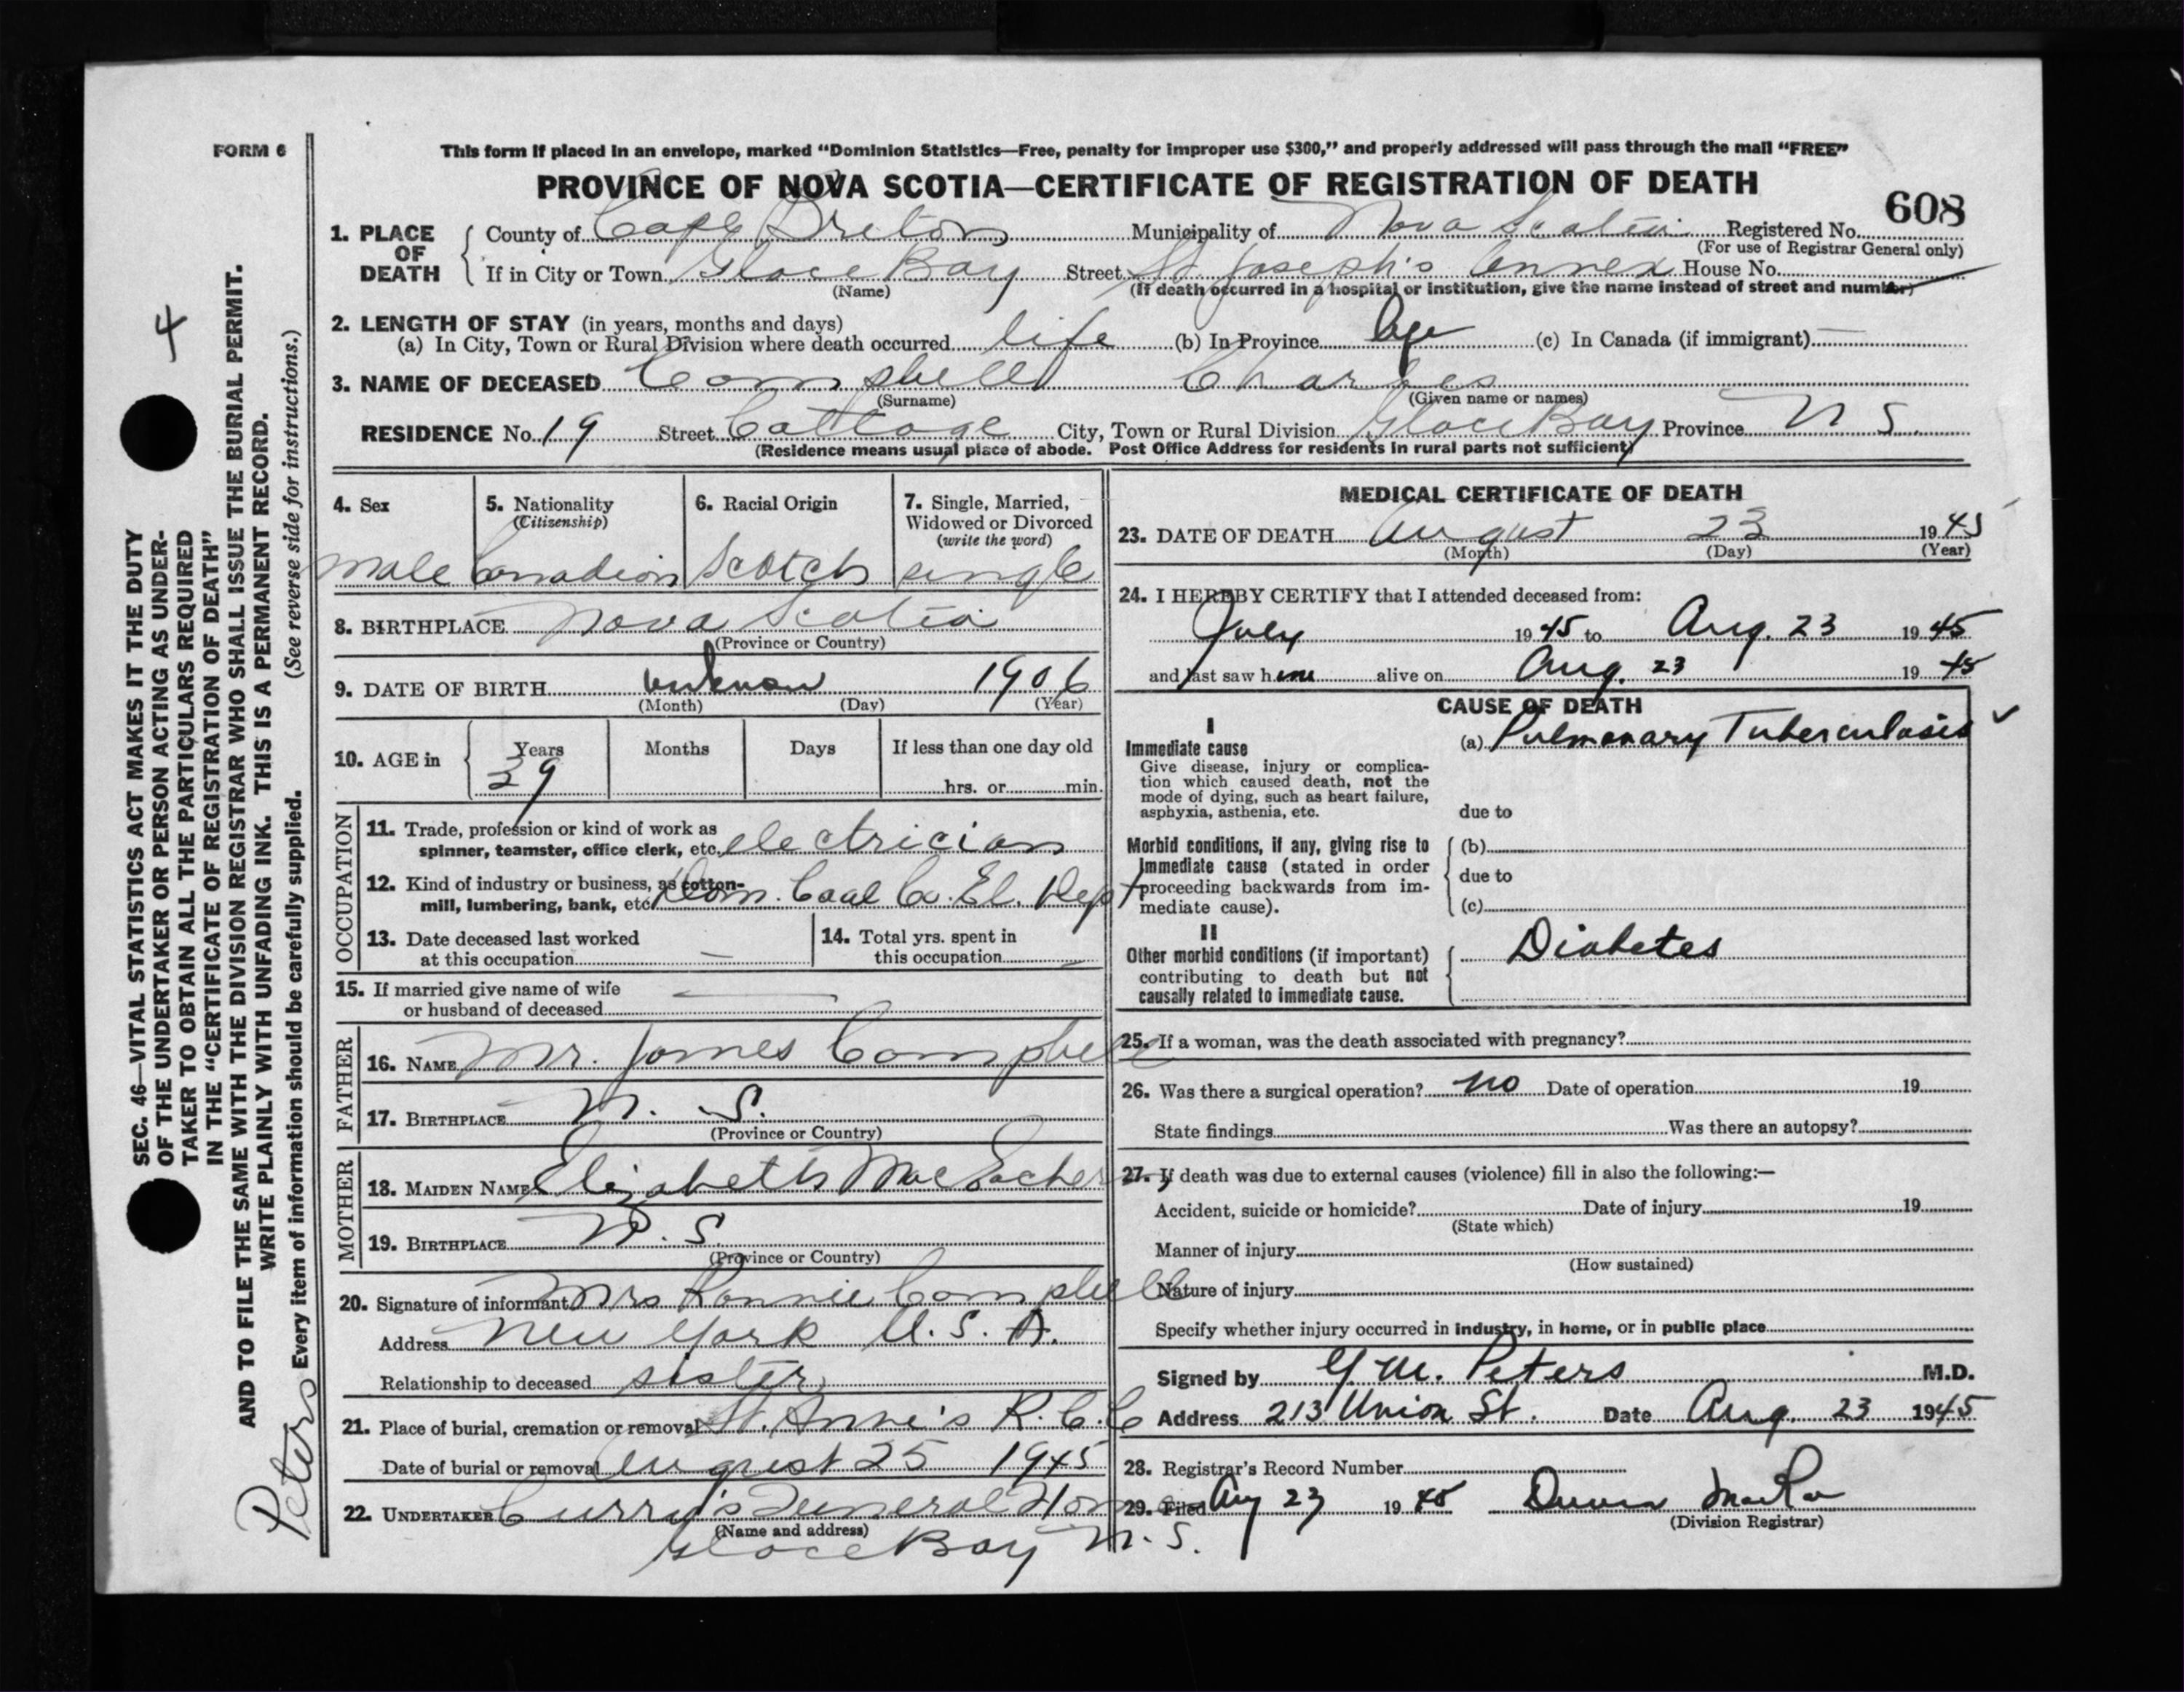 FORM 6
This form if placed in an envelope, marked “Dominion Statistics—Free, penalty for improper use $300,” and properly addressed will pass through the mail “FREE”
PROVINCE OF NOVA SCOTIA—CERTIFICATE OF REGISTRATION OF DEATH
608
1. PLACE OF DEATH
County of Cape Breton Municipality of Nova Scotia Registered No.
(For use of Registrar General only)
If in City or Town Glace Bay Street St. Joseph's Annex House No.
(Name) (If death occurred in a hospital or institution, give the name instead of street and number)
2. LENGTH OF STAY (in years, months and days)
(a) In City, Town or Rural Division where death occurred life (b) In Province (c) In Canada (if immigrant)
3. NAME OF DECEASED Campbell Charles
(Surname) (Given name or names)
RESIDENCE No. 19 Street Cottage City, Town or Rural Division Glace Bay Province N S
(Residence means usual place of abode. Post Office Address for residents in rural parts not sufficient)
4. Sex
male
5. Nationality
(Citizenship)
Canadian
6. Racial Origin
Scotch
7. Single, Married,
Widowed or Divorced
(write the word)
single
8. BIRTHPLACE Nova Scotia
(Province or Country)
9. DATE OF BIRTH unknow 1906
(Month) (Day) (Year)
10. AGE in
Years Months Days If less than one day old
39
hrs. or min.
OCCUPATION
11. Trade, profession or kind of work as
spinner, teamster, office clerk, etc. electrician
12. Kind of industry or business, as cotton-
mill, lumbering, bank, etc. Dom. Coal Co. El. Dept
13. Date deceased last worked
at this occupation —
14. Total yrs. spent in
this occupation —
15. If married give name of wife
or husband of deceased —
FATHER
16. NAME Mr. James Campbell
17. BIRTHPLACE N. S.
(Province or Country)
MOTHER
18. MAIDEN NAME Elizabeth MacEachern
19. BIRTHPLACE N. S.
(Province or Country)
20. Signature of informant Mrs Ronnie Campbell
Address New York U. S. A.
Relationship to deceased sister
21. Place of burial, cremation or removal St. Anne's R. C. C
Date of burial or removal August 25 1945
22. UNDERTAKER Curry's Funeral Home
(Name and address)
Glace Bay N. S.
MEDICAL CERTIFICATE OF DEATH
23. DATE OF DEATH August 23 1945
(Month) (Day) (Year)
24. I HEREBY CERTIFY that I attended deceased from:
July 1945 to Aug. 23 1945
and last saw him alive on Aug. 23 1945
CAUSE OF DEATH
I
Immediate cause
(a) Pulmonary Tuberculosis ✓
Give disease, injury or complica-
tion which caused death, not the
mode of dying, such as heart failure,
asphyxia, asthenia, etc.
due to
Morbid conditions, if any, giving rise to
immediate cause (stated in order
proceeding backwards from im-
mediate cause).
(b)
due to
(c)
II
Other morbid conditions (if important)
contributing to death but not
causally related to immediate cause.
Diabetes
25. If a woman, was the death associated with pregnancy?
26. Was there a surgical operation? no Date of operation 19
State findings Was there an autopsy?
27. If death was due to external causes (violence) fill in also the following:—
Accident, suicide or homicide? Date of injury 19
(State which)
Manner of injury
(How sustained)
Nature of injury
Specify whether injury occurred in industry, in home, or in public place
Signed by G. M. Peters M.D.
Address 213 Union St. Date Aug. 23 1945
28. Registrar's Record Number
29. Filed Aug 23 1945
(Division Registrar)
4
SEC. 46—VITAL STATISTICS ACT MAKES IT THE DUTY
OF THE UNDERTAKER OR PERSON ACTING AS UNDER-
TAKER TO OBTAIN ALL THE PARTICULARS REQUIRED
IN THE “CERTIFICATE OF REGISTRATION OF DEATH”
AND TO FILE THE SAME WITH THE DIVISION REGISTRAR WHO SHALL ISSUE THE BURIAL PERMIT.
WRITE PLAINLY WITH UNFADING INK. THIS IS A PERMANENT RECORD.
Every item of information should be carefully supplied. (See reverse side for instructions.)
Peters